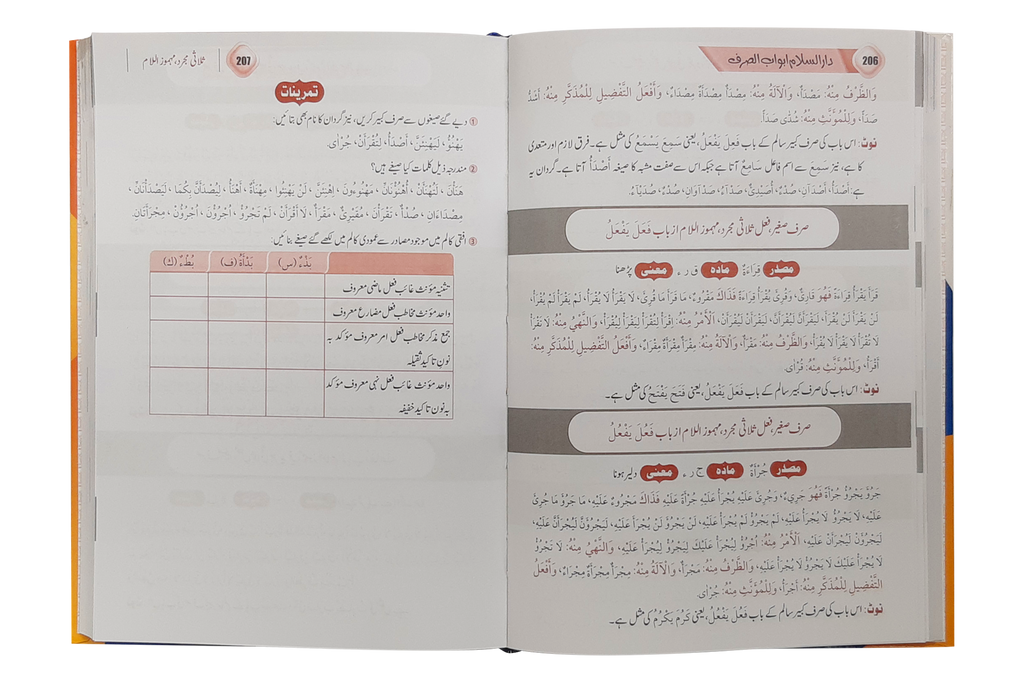 206
دار السلام ابواب الصرف
وَالظَّرْفُ مِنْهُ: مَصْدَأٌ، وَالْآلَةُ مِنْهُ: مِصْدَأٌ مِصْدَأَةٌ مِصْدَاءٌ، وَأَفْعَلُ التَّفْضِيلِ لِلْمُذَكَّرِ مِنْهُ: أَشَدُّ
صَدَأً، وَلِلْمُؤَنَّثِ مِنْهُ: شُدّٰى صَدَأً.
نوٹ: اس باب کی صرف کبیر سالم کے باب فَعِلَ يَفْعَلُ، یعنی سَمِعَ يَسْمَعُ کی مثل ہے۔ فرق لازم اور متعدی
کا ہے، نیز سَمِعَ سے اسم فاعل سَامِعٌ آتا ہے جبکہ اس سے صفت مشبہ کا صیغہ أَصْدَأُ آتا ہے۔ گردان یہ
ہے: أَصْدَأُ، أَصْدَآنِ، صُدْءٌ، أُصَيْدِئُ، صَدْآءُ، صَدْآوَانِ، صُدْءٌ، صُدَيْآءُ.
صرف صغیر، فعل ثلاثی مجرد، مہموز اللام از باب فَعَلَ يَفْعَلُ
مصدر قِرَاءَةٌ مادہ ق ر ء معنی پڑھنا
قَرَأَ يَقْرَأُ قِرَاءَةً فَهُوَ قَارِئٌ، وَقُرِئَ يُقْرَأُ قِرَاءَةً فَذَاكَ مَقْرُوءٌ، مَا قَرَأَ مَا قُرِئَ، لَا يَقْرَأُ لَا يُقْرَأُ، لَمْ يَقْرَأْ لَمْ يُقْرَأْ،
لَنْ يَقْرَأَ لَنْ يُقْرَأَ، لَيَقْرَأَنَّ لَيُقْرَأَنَّ، لَيَقْرَأَنْ لَيُقْرَأَنْ، اَلْأَمْرُ مِنْهُ: اِقْرَأْ لِتُقْرَأْ لِيَقْرَأْ لِيُقْرَأْ، وَالنَّهْيُ مِنْهُ: لَا تَقْرَأْ
لَا تُقْرَأْ لَا يَقْرَأْ لَا يُقْرَأْ، وَالظَّرْفُ مِنْهُ: مَقْرَأٌ، وَالْآلَةُ مِنْهُ: مِقْرَأٌ مِقْرَأَةٌ مِقْرَاءٌ، وَأَفْعَلُ التَّفْضِيلِ لِلْمُذَكَّرِ مِنْهُ:
أَقْرَأُ، وَلِلْمُؤَنَّثِ مِنْهُ: قُرْأٰى.
نوٹ: اس باب کی صرف کبیر سالم کے باب فَعَلَ يَفْعَلُ، یعنی فَتَحَ يَفْتَحُ کی مثل ہے۔
صرف صغیر، فعل ثلاثی مجرد، مہموز اللام از باب فَعُلَ يَفْعُلُ
مصدر جُرْأَةٌ مادہ ج ر ء معنی دلیر ہونا
جَرُؤَ يَجْرُؤُ جُرْأَةً فَهُوَ جَرِيءٌ، وَجُرِئَ عَلَيْهِ يُجْرَأُ عَلَيْهِ جُرْأَةً عَلَيْهِ فَذَاكَ مَجْرُوءٌ عَلَيْهِ، مَا جَرُؤَ مَا جُرِئَ
عَلَيْهِ، لَا يَجْرُؤُ لَا يُجْرَأُ عَلَيْهِ، لَمْ يَجْرُؤْ لَمْ يُجْرَأْ عَلَيْهِ، لَنْ يَجْرُؤَ لَنْ يُجْرَأَ عَلَيْهِ، لَيَجْرُؤَنَّ لَيُجْرَأَنَّ عَلَيْهِ،
لَيَجْرُؤَنْ لَيُجْرَأَنْ عَلَيْهِ، اَلْأَمْرُ مِنْهُ: اُجْرُؤْ لِيُجْرَأْ عَلَيْكَ لِيَجْرُؤْ لِيُجْرَأْ عَلَيْهِ، وَالنَّهْيُ مِنْهُ: لَا تَجْرُؤْ
لَا يُجْرَأْ عَلَيْكَ لَا يَجْرُؤْ لَا يُجْرَأْ عَلَيْهِ، وَالظَّرْفُ مِنْهُ: مَجْرَأٌ، وَالْآلَةُ مِنْهُ: مِجْرَأٌ مِجْرَأَةٌ مِجْرَاءٌ، وَأَفْعَلُ
التَّفْضِيلِ لِلْمُذَكَّرِ مِنْهُ: أَجْرَأُ، وَلِلْمُؤَنَّثِ مِنْهُ: جُرْأٰى.
نوٹ: اس باب کی صرف کبیر سالم کے باب فَعُلَ يَفْعُلُ، یعنی كَرُمَ يَكْرُمُ کی مثل ہے۔
207
ثلاثی مجرد، مہموز اللام
تمرینات
① دیے گئے صیغوں سے صرف کبیر کریں، نیز گردان کا نام بھی بتائیں:
يَهْنُؤُ، لَيَهْنِئَنَّ، أَصْدَأُ، لَتُقْرَأَنَّ، جُرْأٰى.
② مندرجہ ذیل کلمات کیا صیغے ہیں؟
هَنَأْنَ، لَتُهْنَأَنْ، أَهْنَؤُنَانِ، مَهْنُوءُونَ، اِهْنِئَنَّ، لَنْ يَهْنِئُوا، مِهْنَأَةٌ، أَهْنَأُ، لَيُصْدَأَنَّ بِكُمَا، لَيَصْدَأْنَانِّ،
مِصْدَاءَانِ، صُدْأً، تَقْرَأَنَ، مُقَيْرِئٌ، مَقْرَأً، لَا أَقْرَأَنْ، لَمْ نَجْرُؤْ، اُجْرُؤُنَّ، اُجْرُؤُنْ، مِجْرَأَتَانِ.
③ افقی کالم میں موجود مصادر سے عمودی کالم میں لکھے گئے صیغے بنائیں:
بَدْءٌ (س) بَدْأَةٌ (ف) بُطْءٌ (ك)
تثنیہ مؤنث غائب فعل ماضی معروف
واحد مؤنث مخاطب فعل مضارع معروف
جمع مذکر مخاطب فعل امر معروف مؤکد بہ
نون تاکید ثقیلہ
واحد مؤنث غائب فعل نہی معروف مؤکد
بہ نون تاکید خفیفہ